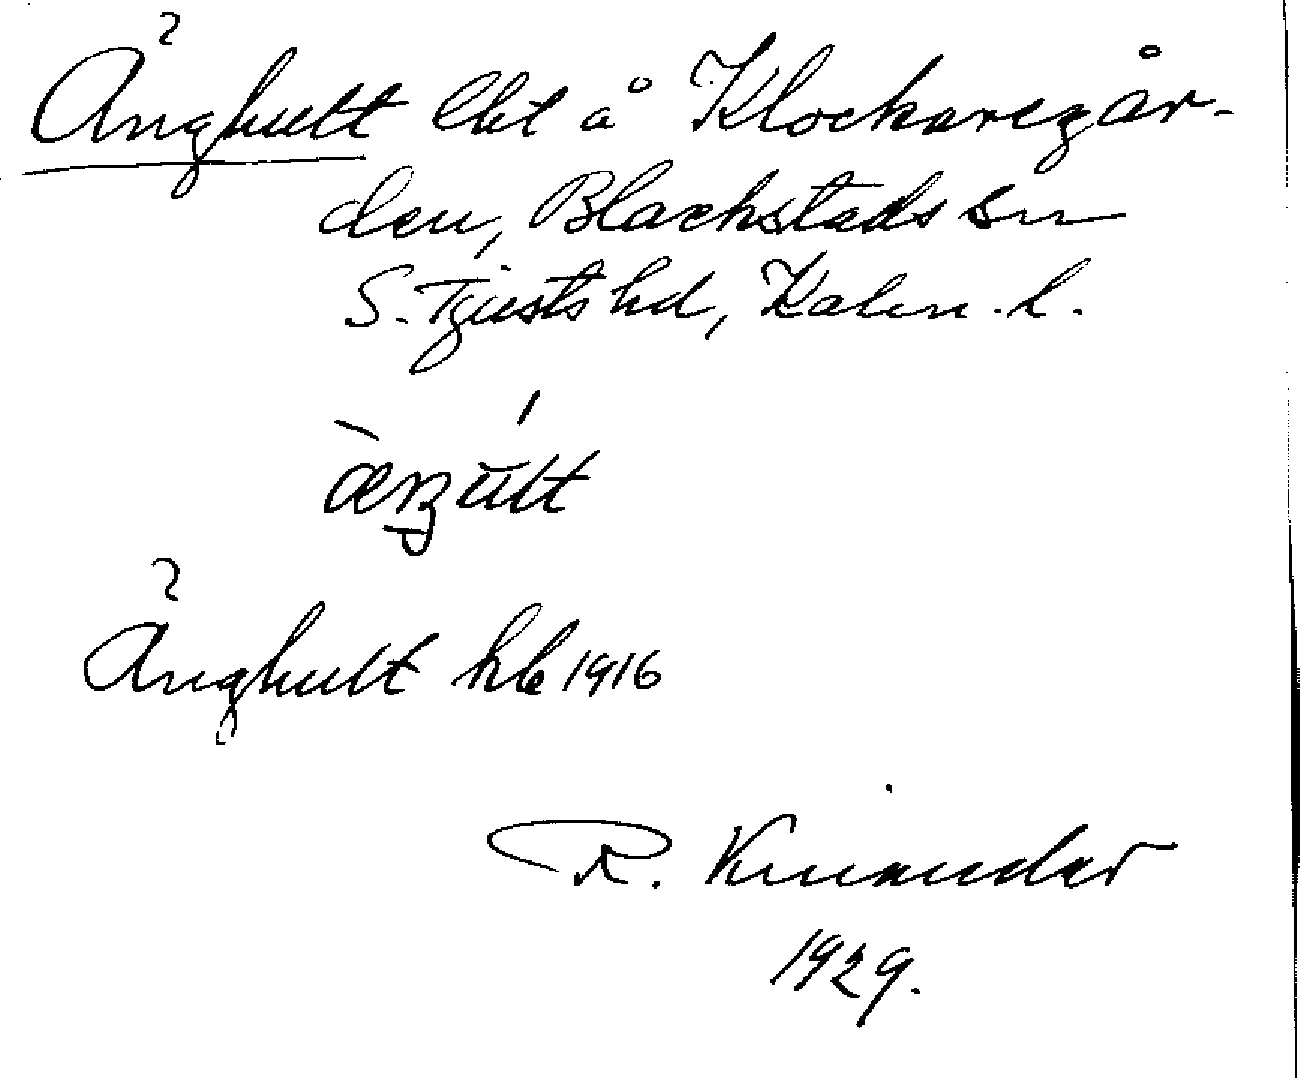 Änghult lht å Klockaregår-
den, Blackstads sn
S. Tjusts hd, Kalm. l.
Änghult hb 1916
R. Kinander
1929.